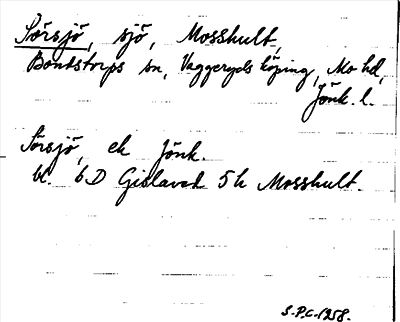 Sörsjö, sjö, Mosshult,
Bondstorps sn, Vaggeryds köping, Mo hd,
Jönk. l.
Sörsjö, ek Jönk.
bl. 6D Gislaved 5h Mosshult.
S.P.C. 1958.